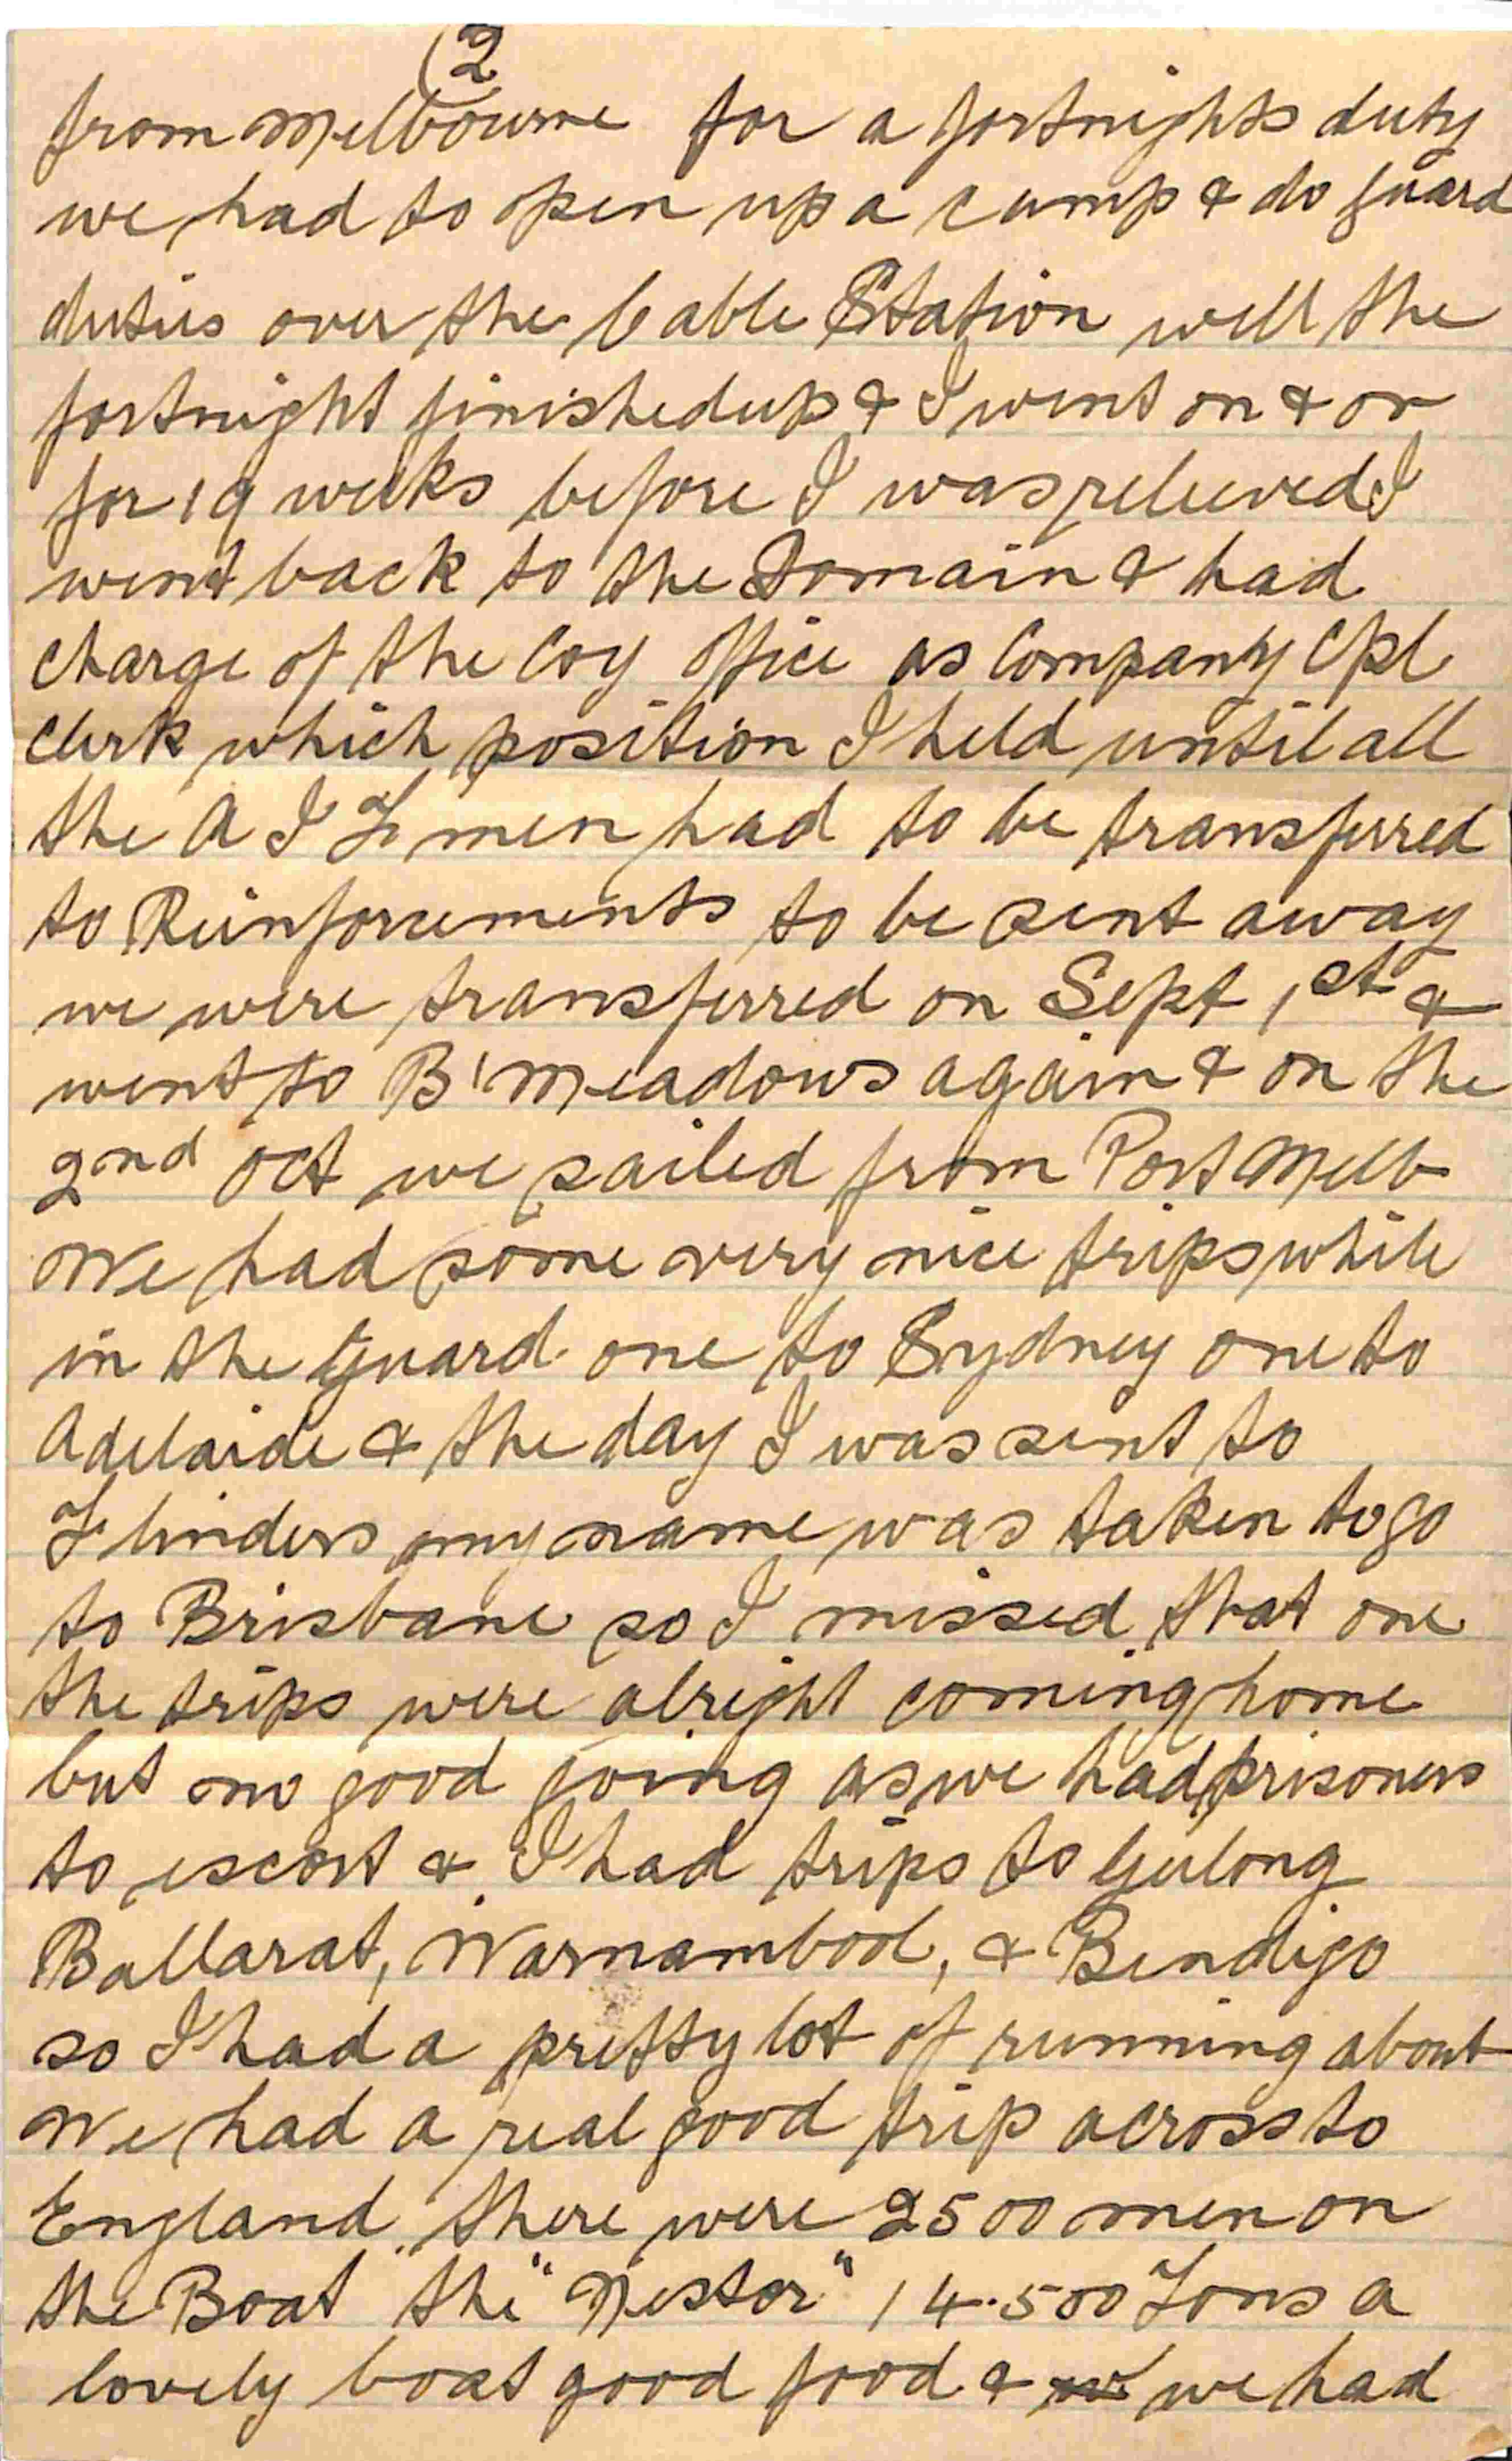 (2
from Melbourne for a fortnights duty
we had to open up a camp & do guard
duties over the Cable Station well the
fortnight finished up & I went on & on
for 19 weeks before I was relieved I
went back to the Domain & had
charge of the Coy Office as Company Cpl
Clerk which position I held until all
the A I F men had to be transferred
to Reinforcements to be sent away
we were transferred on Sept 1st &
went to B'Meadows again & on the
2nd Oct we sailed from Port Melb
We had some very nice trips while
in the Guard one to Sydney one to
Adelaide & the day I was sent to
Flinders my name was taken to go
to Brisbane so I missed that one
the trips were alright coming home
but no good going as we had prisoners
to escort & I had trips to Geelong
Ballarat, Warnambool, & Bendigo
so I had a pretty lot of running about
We had a real good trip across to
England. there were 2500 men on
the Boat the "Nestor" 14.500 Tons a
lovely boat good food & we had